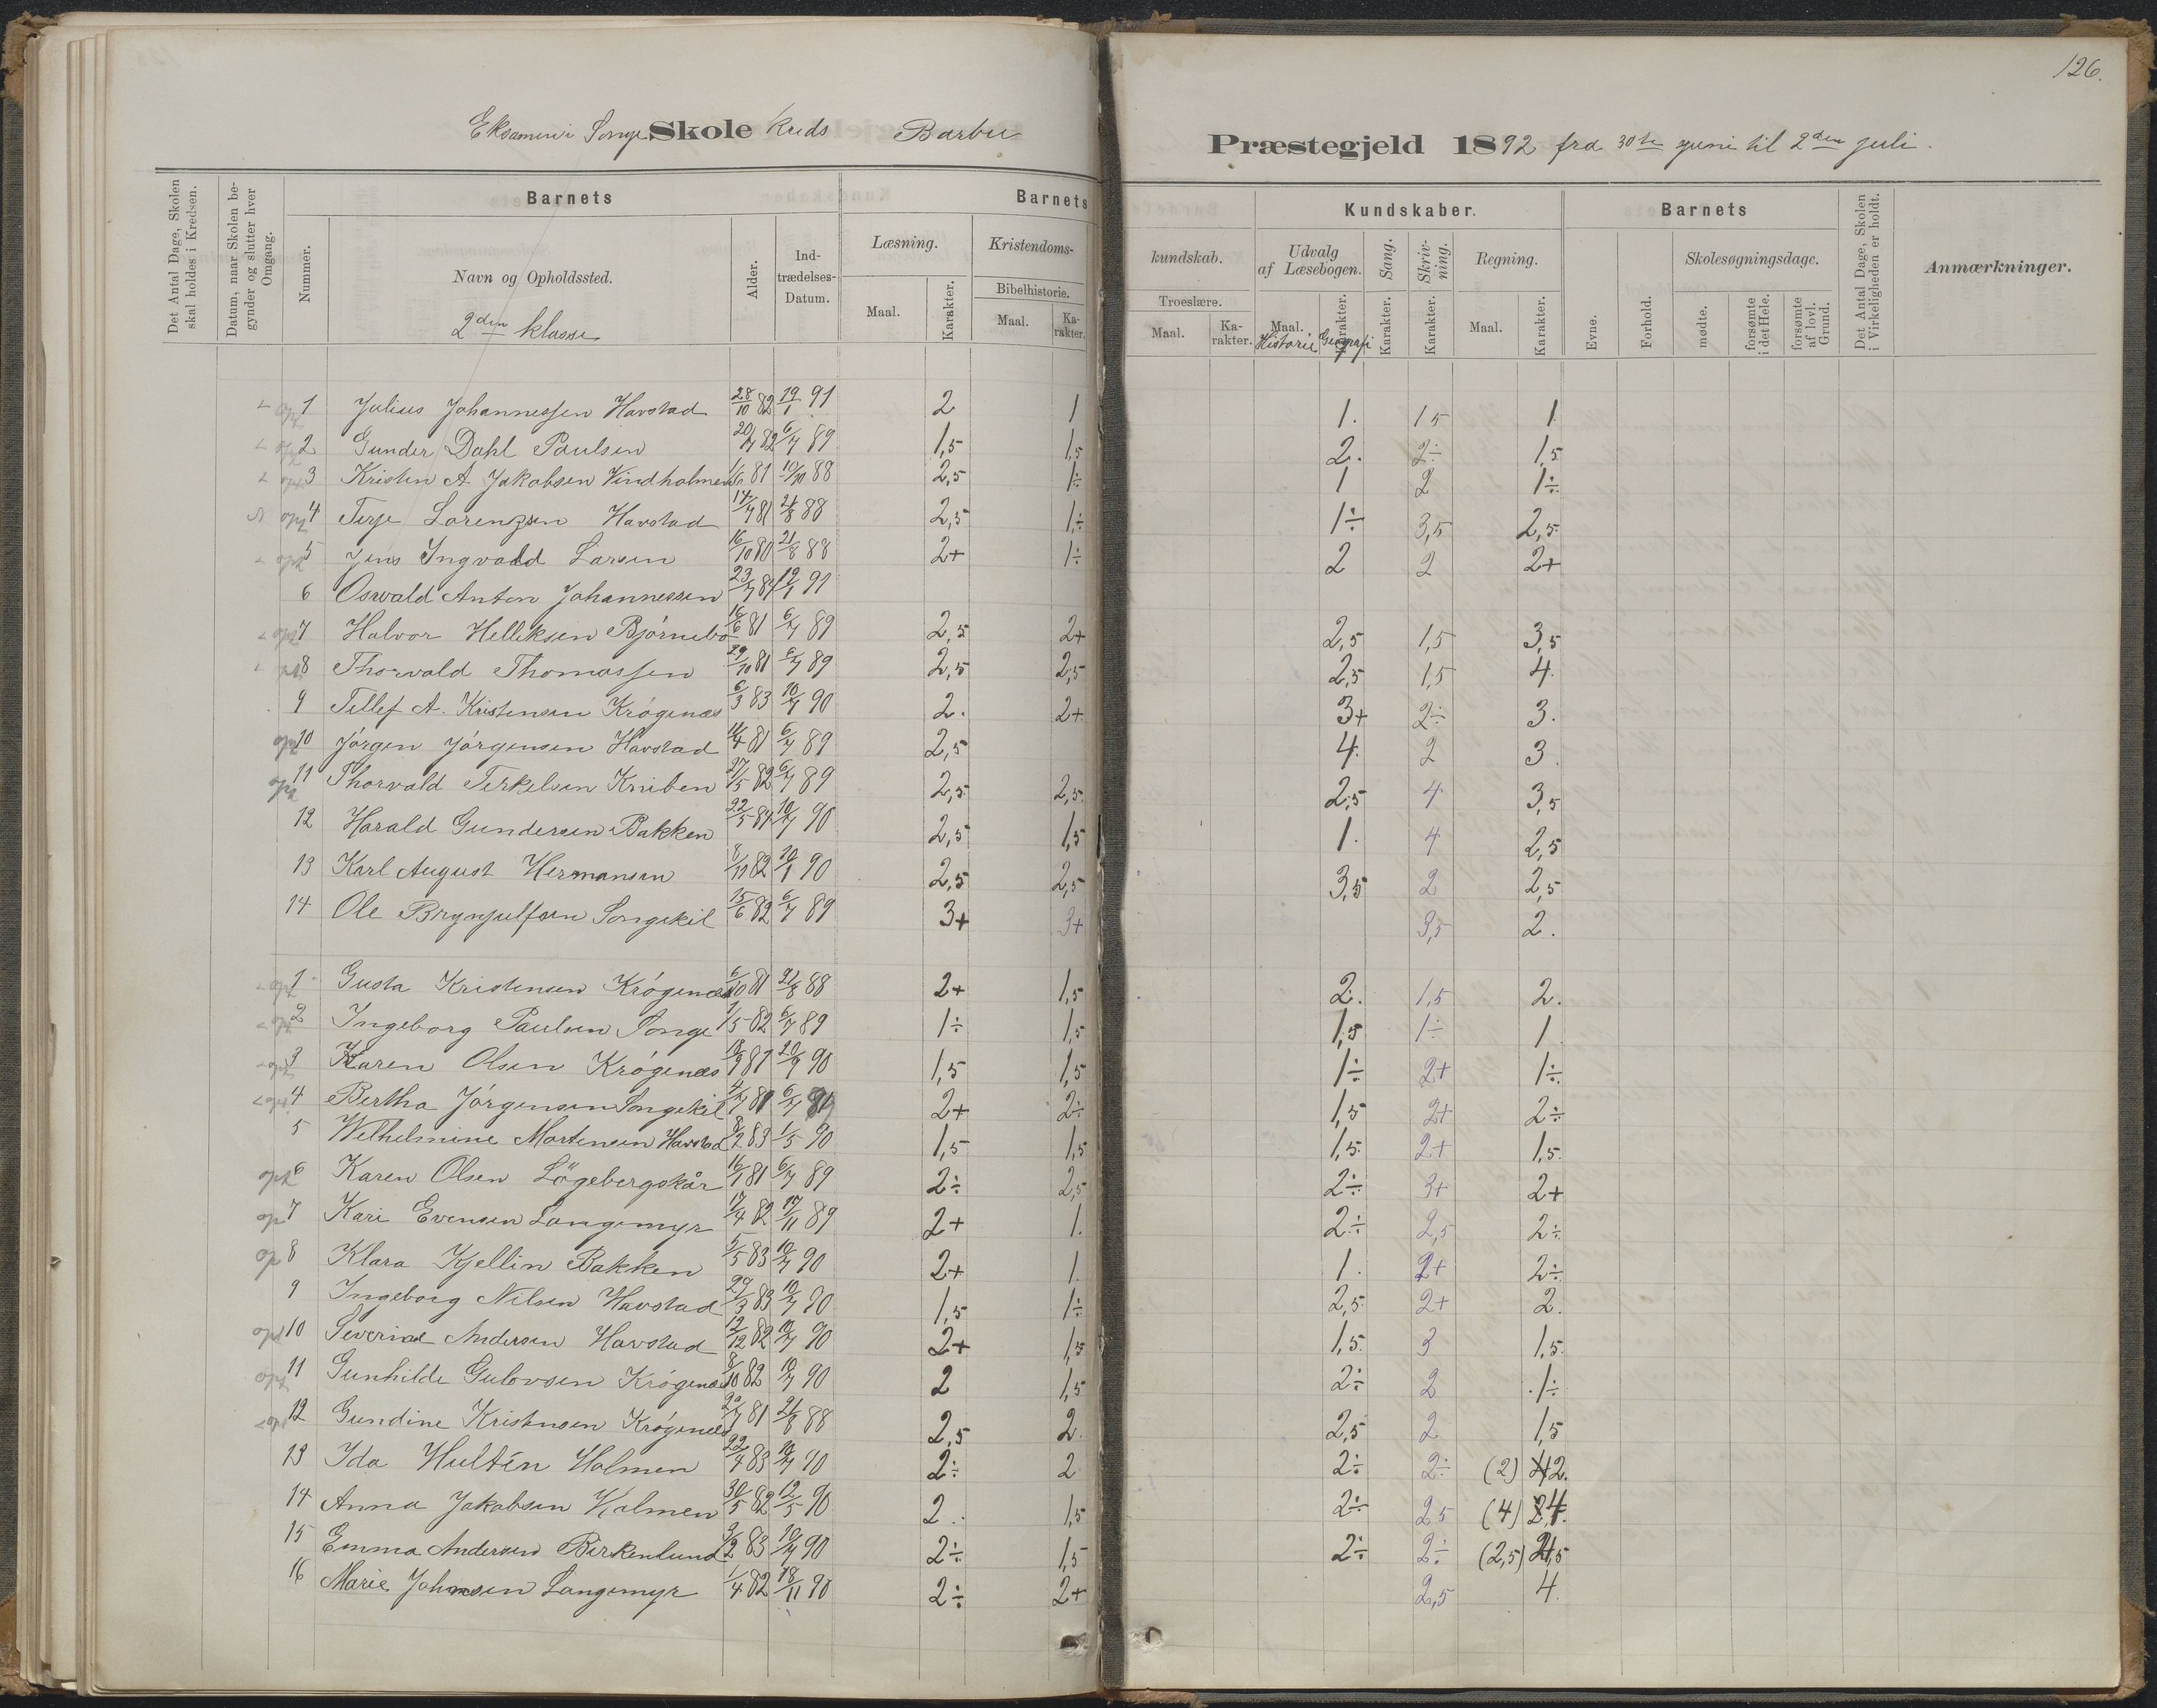 126.
Eksamen i Songe Skole Kreds Barbu Præstegjeld 1892 fra 30te juni til 2den juli.
Det Antal Dage, Skolen skal holdes i Kredsen.
Datum, naar Skolen begynder og slutter hver Omgang.
Nummer.
Barnets
Navn og Opholdssted.
2den klasse
Alder.
Indtrædelses-Datum.
Barnets Kundskaber.
Læsning. Maal. Karakter.
Kristendoms-kundskab.
Bibelhistorie. Maal. Karakter.
Troeslære. Maal. Karakter.
Udvalg af Læsebogen. Maal. Karakter.
Historie Geografi
Sang. Karakter.
Skrivning. Karakter.
Regning. Maal. Karakter.
Barnets
Evne. Forhold.
Skolesøgningsdage.
mødte. forsømte i det Hele. forsømte af lovl. Grund.
Det Antal Dage, Skolen i Virkeligheden er holdt.
Anmærkninger.
op 1 Julius Johannessen Havstad 28/10 82 19/1 91 2 1 1. 1,5 1.
op 2 Gunder Dahl Paulsen 20/7 82 6/7 89 1,5 1,5 2. 2÷ 1,5
op 3 Kristen A. Jakobsen Vindholmen 1/6 81 10/10 88 2,5 1÷ 1 2 1÷
op 4 Terje Lorenzsen Havstad 14/7 81 21/8 88 2,5 1÷ 1÷ 3,5 2,5
op 5 Jens Ingvald Larsen 16/10 80 21/8 88 2+ 1÷ 2 2 2+
6 Oswald Anton Johannessen 23/7 84 19/1 91
op 7 Halvor Helliksen Bjørnebo 16/6 81 6/7 89 2,5 2+ 2,5 1,5 3,5
op 8 Thorvald Thomassen 29/10 81 6/7 89 2,5 2,5 2,5 1,5 4
9 Tellef A. Kristensen Krøgenæs 6/3 83 10/7 90 2. 2+ 3+ 2÷ 3.
op 10 Jørgen Jørgensen Havstad 11/4 81 6/7 89 2,5 4. 2 3.
op 11 Thorvald Terkelsen Kniben 27/5 82 6/7 89 2,5 2,5 2,5 4 3,5
12 Harald Gundersen Bakken 22/5 84 10/7 90 2,5 1,5 1. 4 2,5
13 Karl August Hermansen 8/10 82 20/1 90 2,5 2,5 3,5 2 2,5
14 Ole Brynjulfsen Songekil 15/6 82 6/7 89 3+ 3+ 3,5 2.
op 1 Gusta Kristensen Krøgenæs 6/10 81 21/8 88 2+ 1,5 2. 1,5 2.
op 2 Ingeborg Paulsen Songe 1/5 82 6/7 89 1÷ 1,5 1,5 1÷ 1
op 3 Karen Olsen Krøgenæs 18/9 81 20/9 90 1,5 1,5 1÷ 2+ 1÷
op 4 Bertha Jørgensen Songekil 4/7 81 6/7 89 2+ 2÷ 1,5 2+ 2÷
5 Wilhelmine Mortensen Havstad 8/2 83 1/5 90 1,5 1,5 1,5 2+ 1,5
op 6 Karen Olsen Løgebergskår 16/1 81 6/7 89 2÷ 2,5 2÷ 3+ 2+
op 7 Kari Evensen Langemyr 17/4 82 17/11 89 2+ 1. 2÷ 2,5 2÷
op 8 Klara Kjellin Bakken 5/5 83 10/7 90 2+ 1. 1. 2+ 2÷
9 Ingeborg Nilsen Havstad 29/3 83 10/7 90 1,5 1÷ 2,5 2+ 2.
op 10 Severine Andersen Havstad 12/12 82 10/7 90 2+ 1,5 1,5 3 1,5
op 11 Gunhilde Gulovsen Krøgenæs 8/10 82 10/7 90 2 1,5 2÷ 2 1÷
op 12 Gundine Kristensen Krøgenæs 20/7 81 21/8 88 2,5 2. 2,5 2 1,5
13 Ida Hultén Holmen 22/4 83 10/7 90 2÷ 2 2÷ 2÷ (2) 2.
14 Anna Jakobsen Holmen 30/5 82 12/5 90 2. 1,5 2÷ 2,5 (4) 4.
15 Emma Andersen Birkenlund 3/2 83 10/7 90 2÷ 1,5 2÷ 2÷ (2,5) 2,5
16 Marie Johnsen Langemyr 1/4 82 18/11 90 2÷ 2+ 2,5 4.